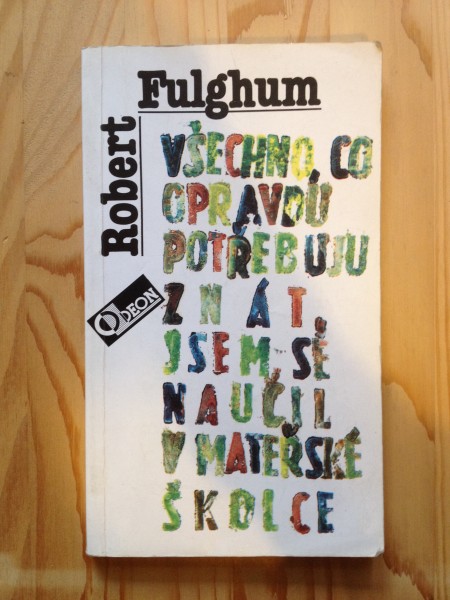 Robert
Fulghum
VŠECHNO, CO
OPRAVDU
POTŘEBUJU
ZNÁT,
JSEM SE
NAUČIL
V MATEŘSKÉ
ŠKOLCE
ODEON